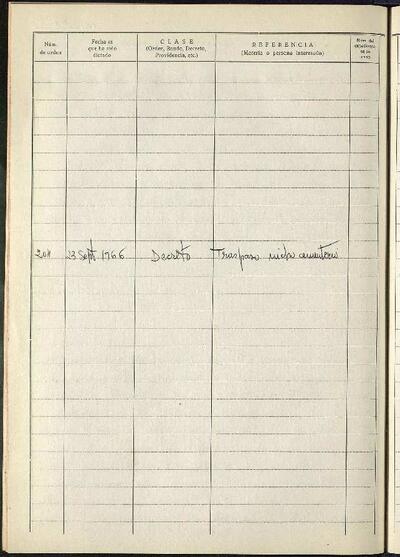 Núm. de orden
Fecha en que ha sido dictado
CLASE
(Orden, Bando, Decreto, Providencia, etc.)
REFERENCIA
(Materia o persona interesada)
23 Sept 1966 Decreto Traspaso nicho cementerio